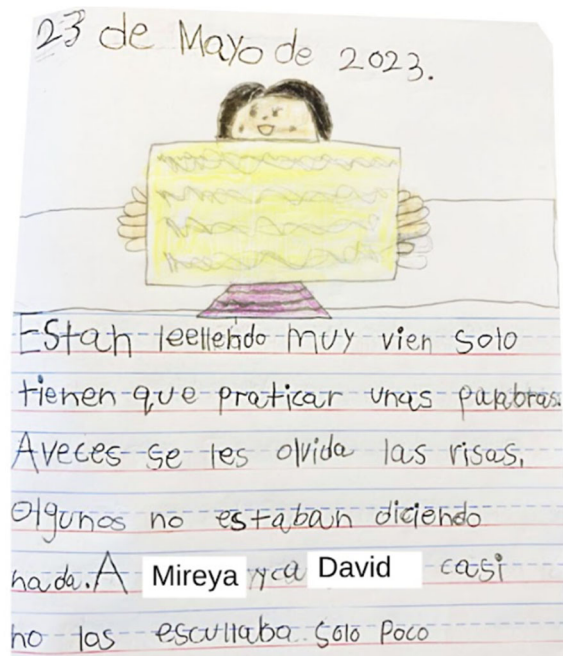 23 de Mayo de 2023.
Estan leellendo muy vien solo
tienen que praticar unas parabras.
Aveces se les olvida las risas,
Olgunos no estaban diciendo
nada. A Mireya y a David casi
no los escullaba solo poco